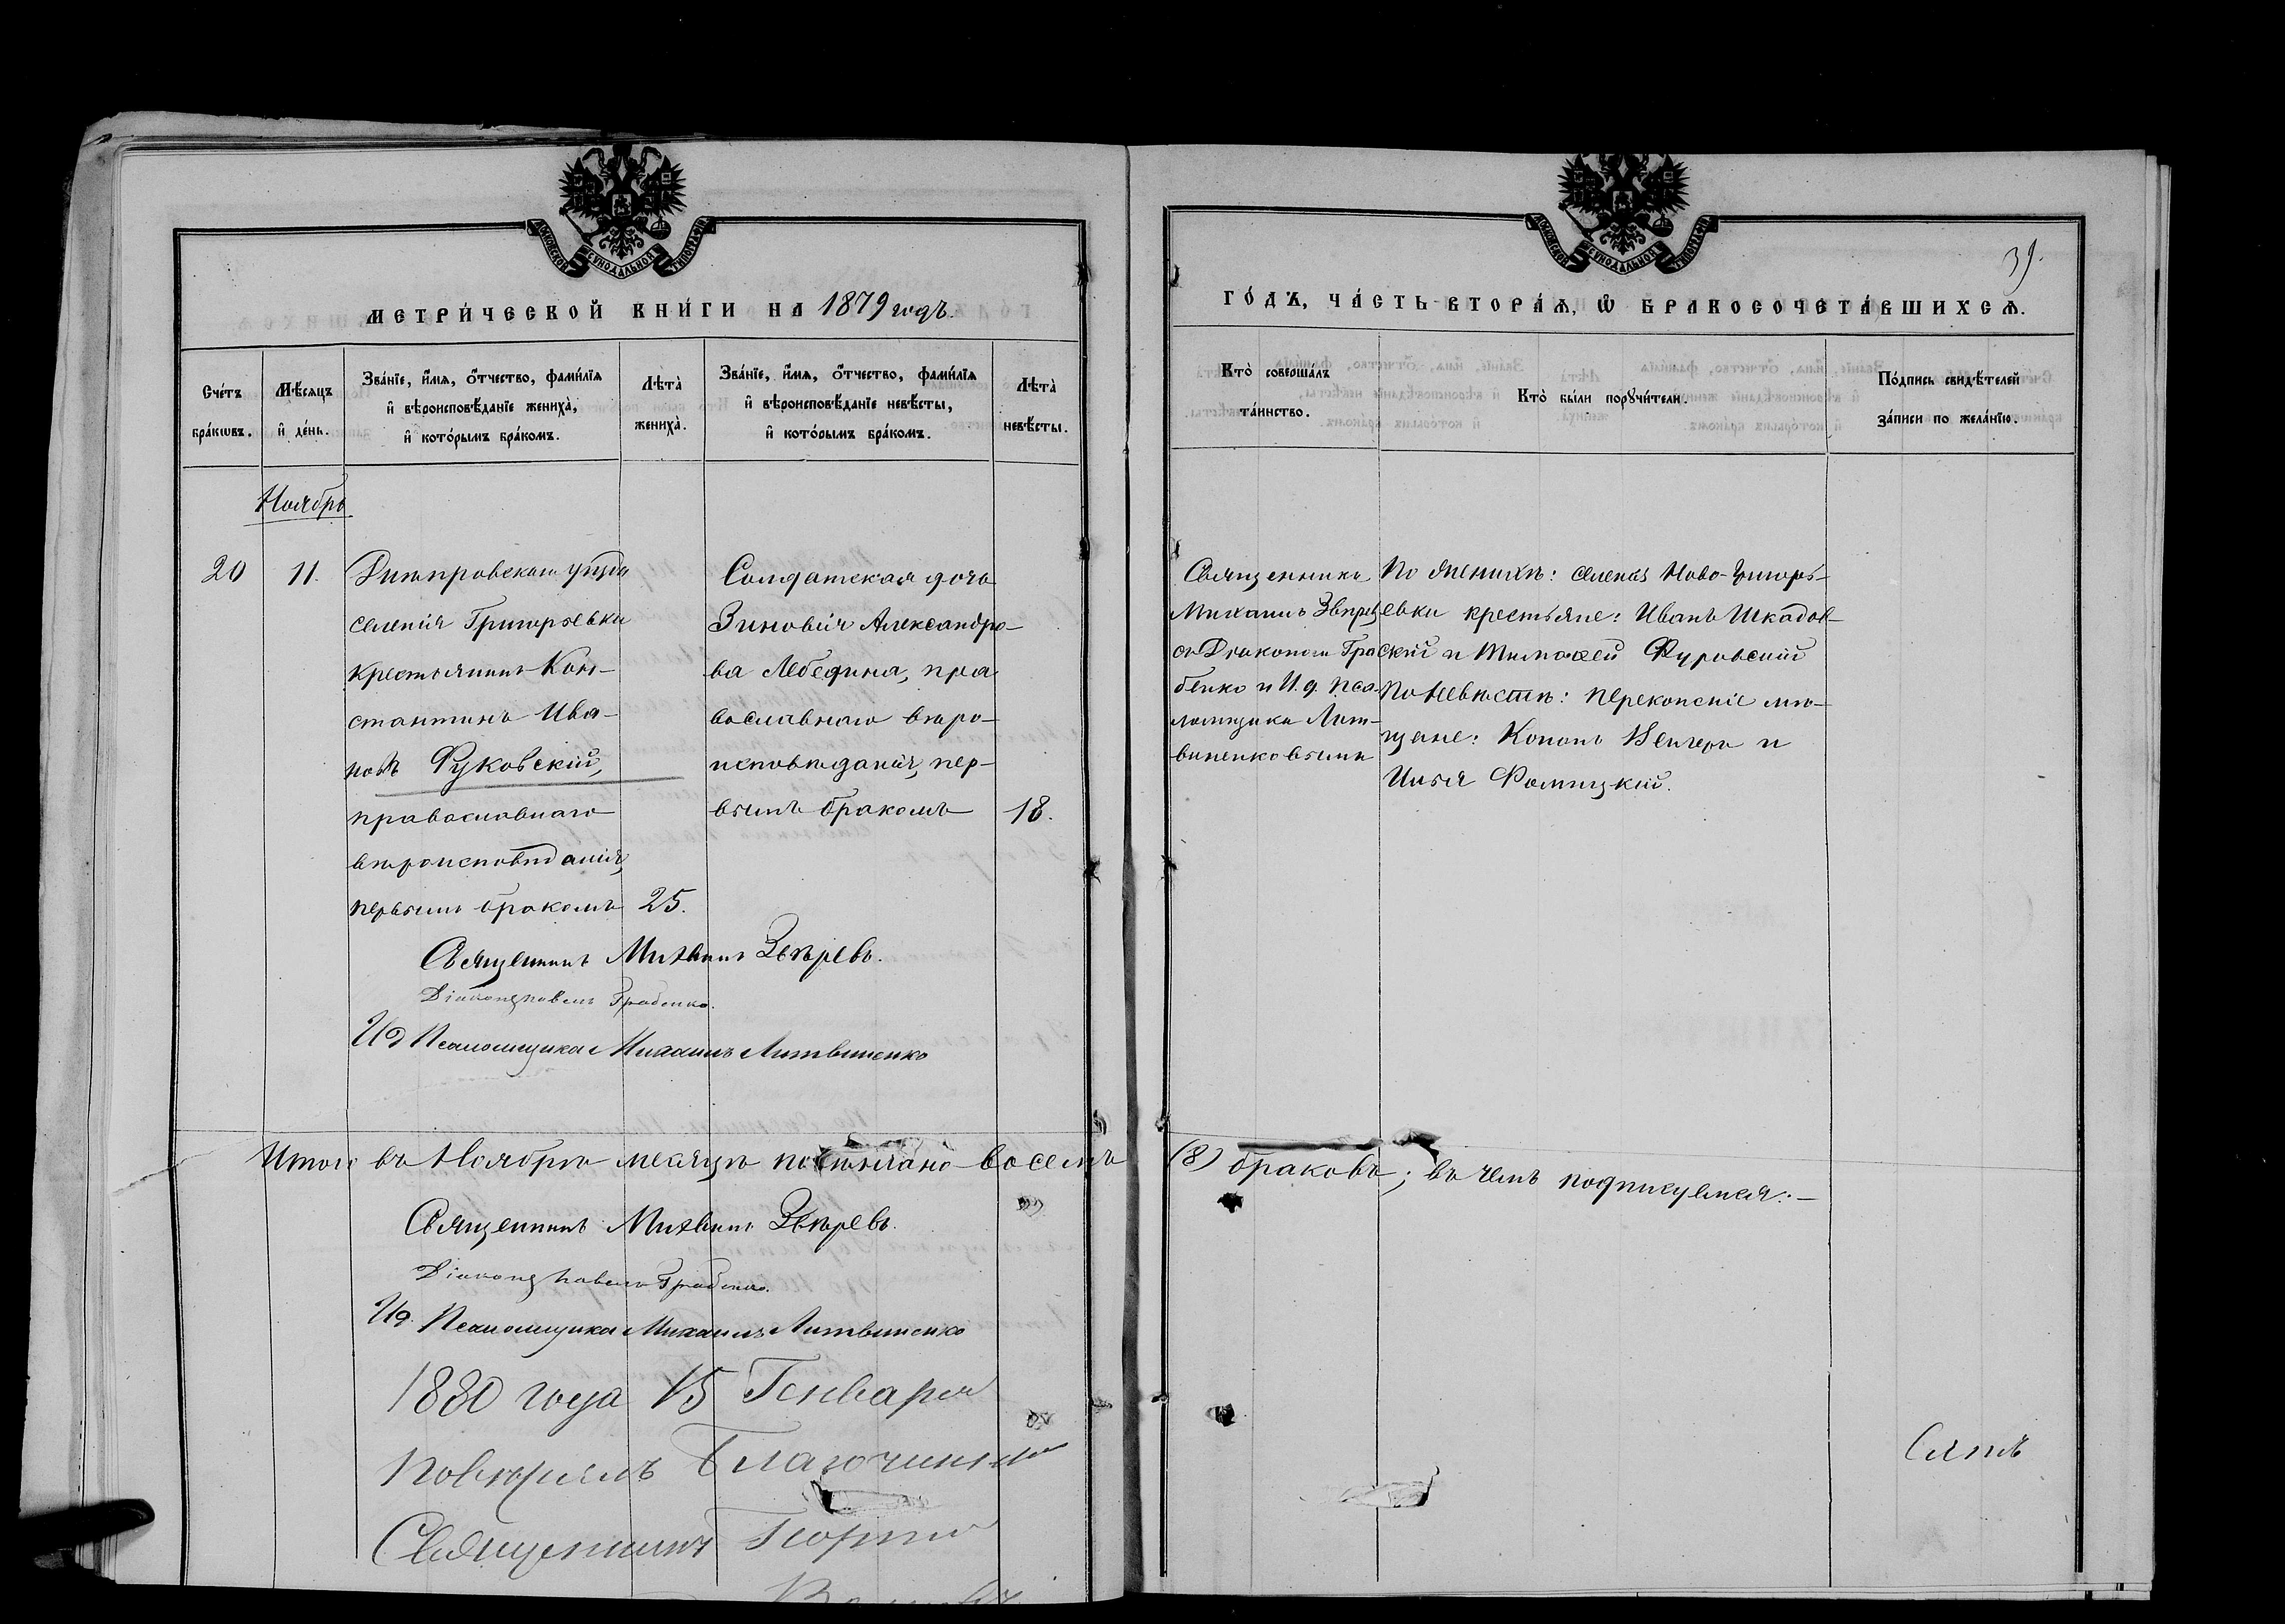 МОСКОВСКОЙ СѴНОДАЛЬНОЙ ТИПОГРАФІИ
МЕТРИ́ЧЕСКОЙ КНИ́ГИ НА 1879 годъ.
Сче́тъ бра́кωвъ.
Мѣ́сяцъ и҆ де́нь.
Зва́нїе, и҆́мѧ, ѻ҆́тчество, фами́лїѧ
и҆ вѣроисповѣ́данїе жениха̀,
и҆ кото́рымъ бра́комъ.
Лѣта̀ жениха̀.
Зва́нїе, и҆́мѧ, ѻ҆́тчество, фами́лїѧ
и҆ вѣроисповѣ́данїе невѣ́сты,
и҆ кото́рымъ бра́комъ.
Лѣта̀ невѣ́сты.
Ноябрь
20
11.
Днѣпровскаго уѣзда
селенія Григорьевки
крестьянинъ Кон-
стантинъ Ива-
новъ Фуковскій,
православнаго
вѣроисповѣданія,
первымъ бракомъ
25.
Солдатская дочь
Зиновія Александро-
ва Лебедина, пра
вославнаго вѣро-
исповѣданія, пер-
вымъ бракомъ
18.
Священникъ Михаилъ Звѣревъ.
Діаконъ Павелъ Грабенко.
И д Псаломщика Михаилъ Литвиненко
Итого въ Ноябрѣ месяцѣ восемь
Священникъ Михаилъ Звѣревъ.
Діаконъ Павелъ Грабенко.
И д. Псаломщика Михаилъ Литвиненко
1880 года 15 Генваря
повѣрялъ Благочинный
Священникъ Георгій
МОСКОВСКОЙ СѴНОДАЛЬНОЙ ТИПОГРАФІИ
39.
ГО́ДЪ, ЧА́СТЬ ВТОРА́Ѧ, Ѽ БРАКОСОЧЕТА́ВШИХСѦ.
Кто̀ соверша́лъ
та́инство.
Кто̀ бы́ли порꙋчи́тели.
По́дпись свидѣ́телей
за́писи по жела́нїю.
Священникъ
Михаилъ Звѣрев
съ Діакономъ Гра
бенко и И. д. пса-
ломщика Лит-
виненковымъ
По женихѣ: селенія Ново-Григорь-
евки крестьяне: Иванъ Шкадов-
скій и Тимофей Фуровскій
по невѣстѣ: перекопскіе мѣ-
щане: Кононъ Венгеръ и
Илья Фомицкій.
(8) браковъ; въ чемъ подписуемся: –